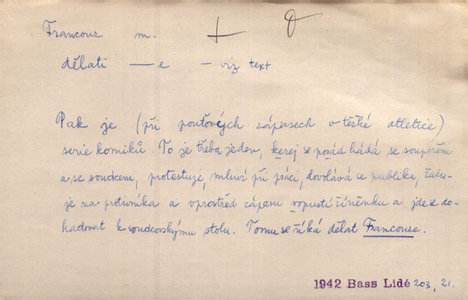 Francouz m.
dělati — e – viz text
Pak je (při pouťových zápasech v těžké atletice)
serie komiků. To je třeba jeden, kerej se pořád hádá se soupeřem
a se soudcem, protestuje, mluví při práci, dovolává se publika, žalu-
je na protivníka a vprostřed zájmu vopustí žíněnku a jde se do-
hadovat k soudcovskýmu stolu. Tomu se říká dělat Francouze.
1942 Bass Lidé 203, 21.